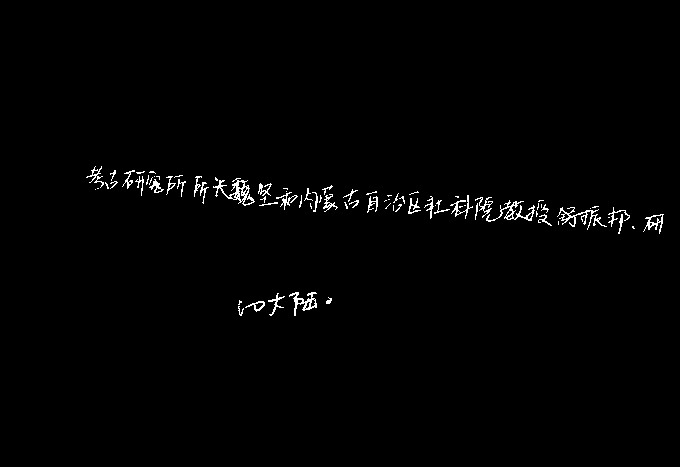 考古研究所所长魏坚和内蒙古自治区社科院教授舒振邦、研
大陆。